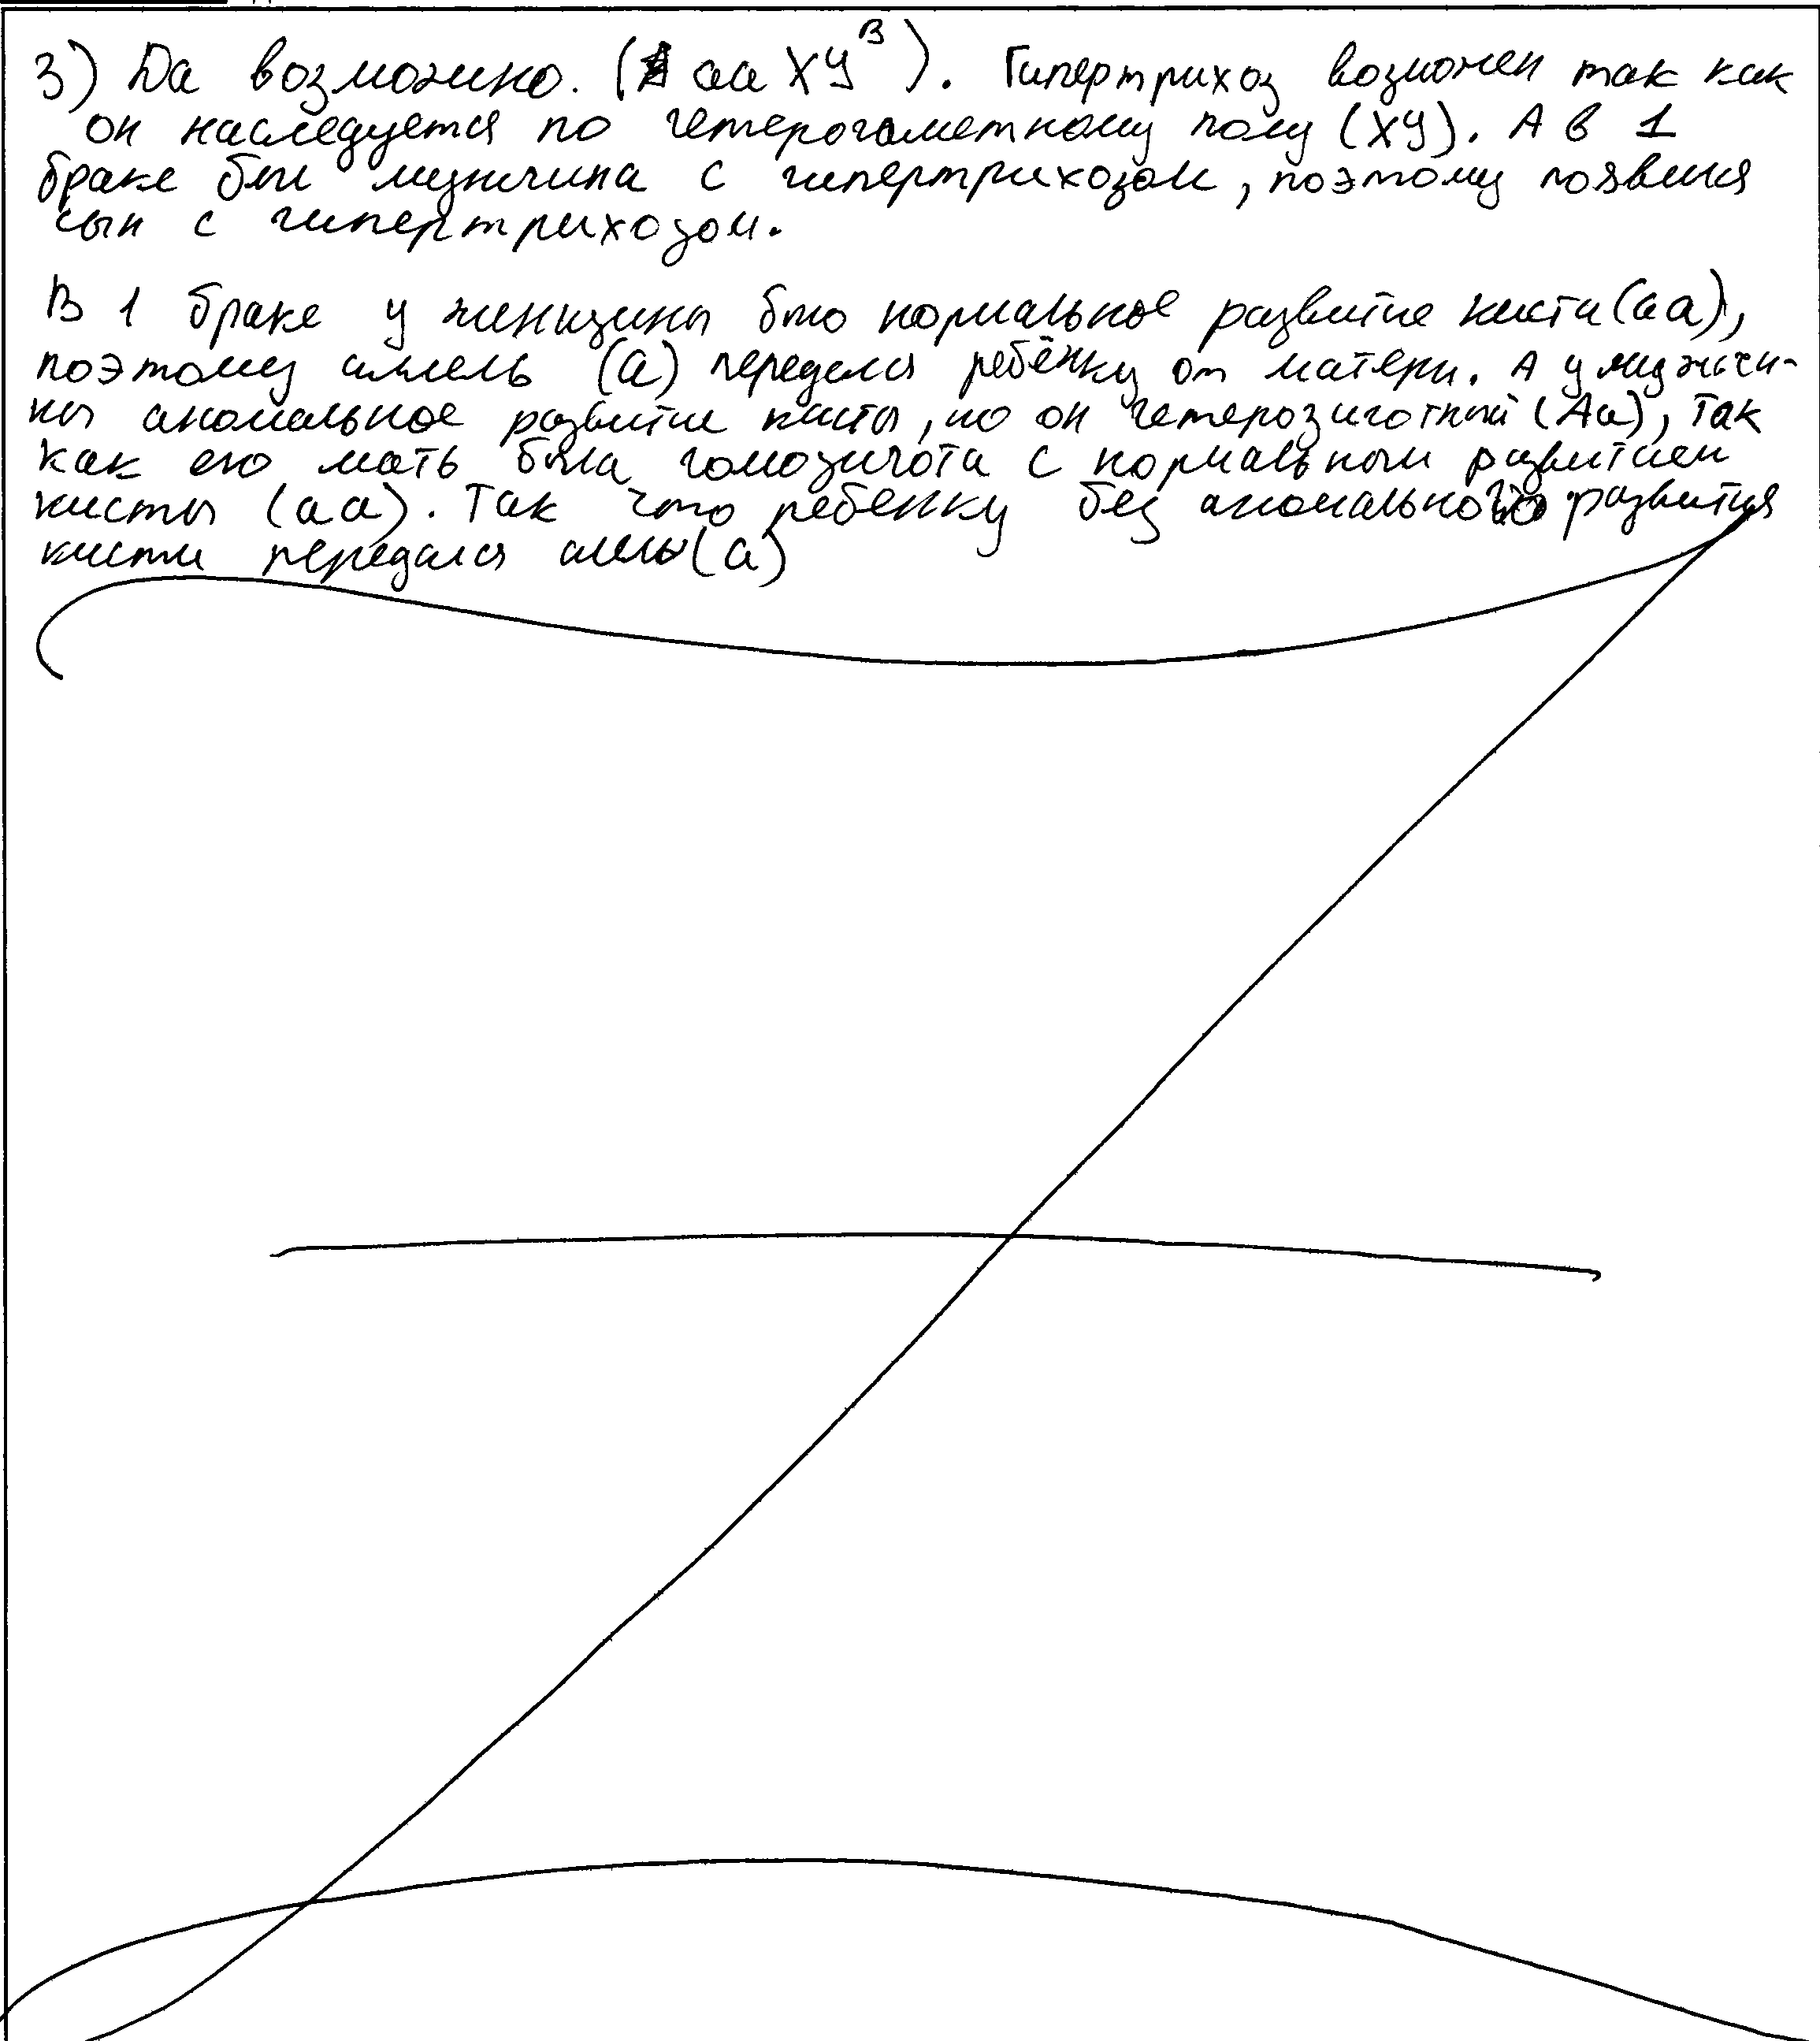 3) Да возможно. (aa XУᴮ). Гипертрихоз возможен так как
он наследуется по гетерогаметному полу (ХУ). А в 1
браке был мужчина с гипертрихозом, поэтому появился
сын с гипертрихозом.
В 1 браке у женщины было нормальное развитие кисти (aa),
поэтому аллель (a) передался ребёнку от матери. А у мужчи-
ны аномальное развитие кисты, но он гетерозиготный (Aa), так
как его мать была гомозигота с нормальным развитием
кисты (aa). Так что ребенку без аномального развития
кисти передался алель (a)